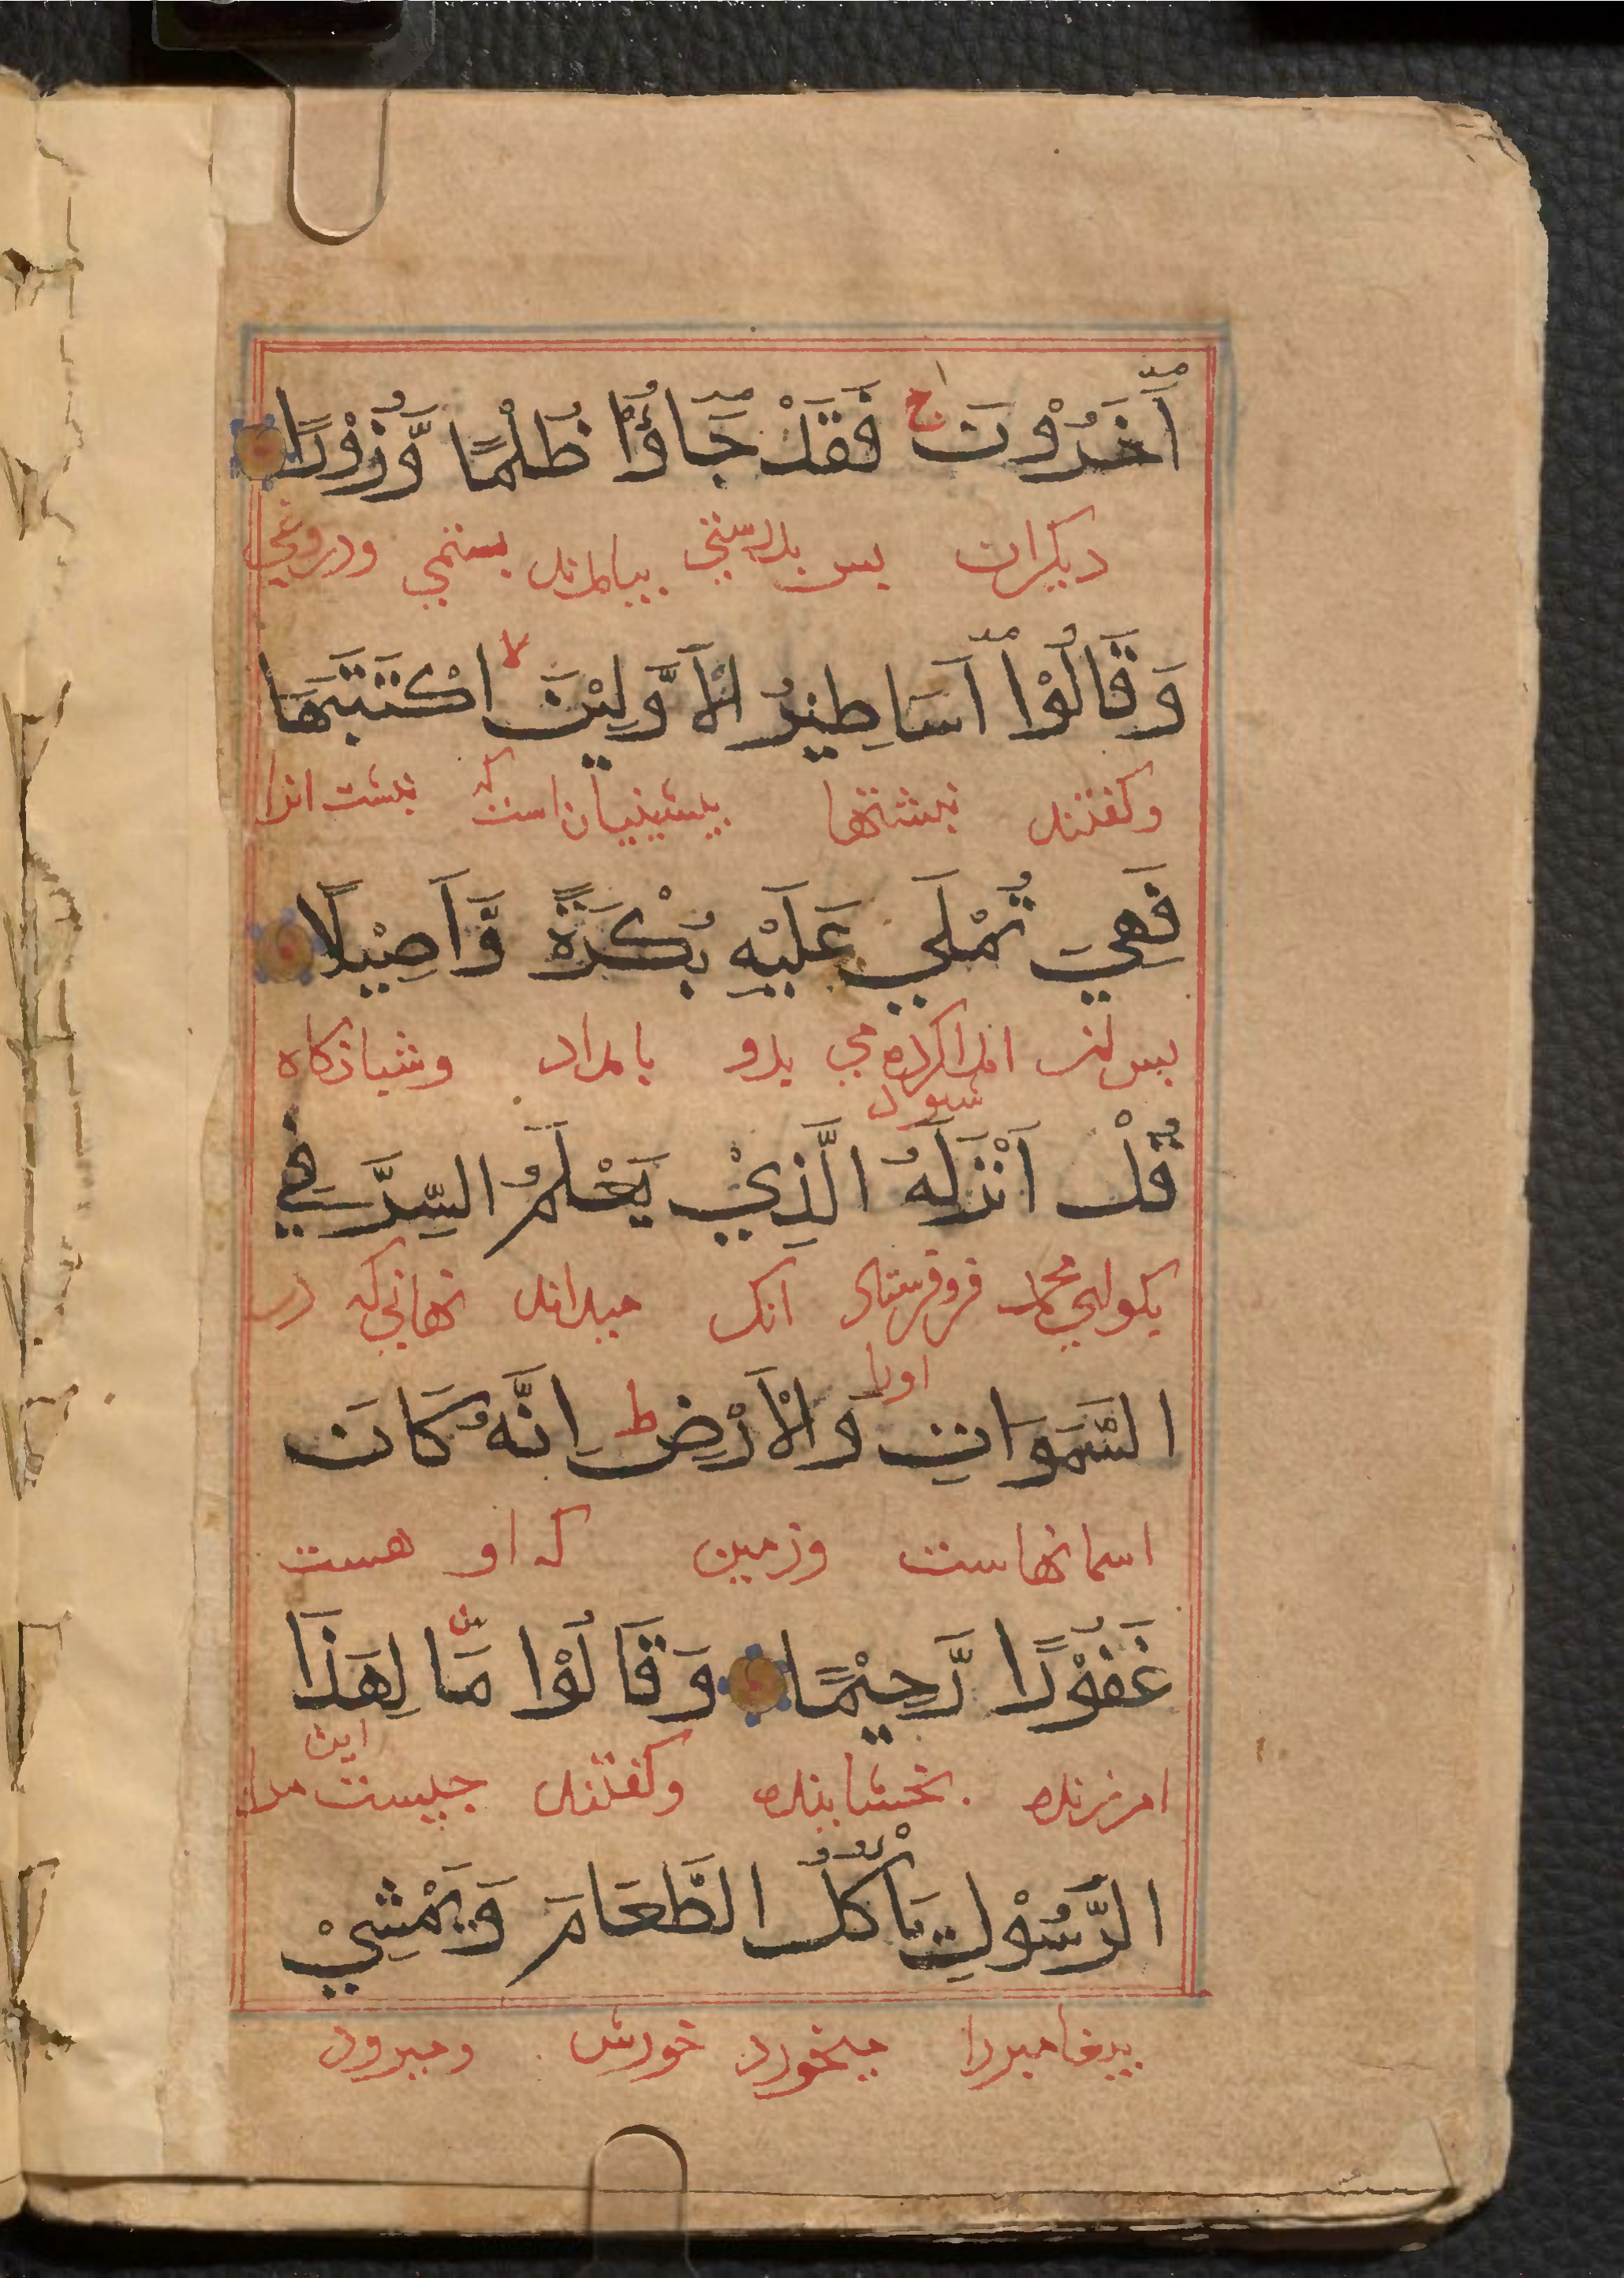 اٰخَرُوْنَ ج فَقَدْ جَاؤُا ظُلْمًا وَّزُوْرًا
ديكران بس بدرستي بيامدند بستمي ودروغي
وَقَالُوْا اَسَاطِيْرُ الْاَوَّلِيْنَ لا اكْتَتَبَهَا
وكفتند نبشتها بيشينيان است كه نبشت انرا
فَهِيَ تُمْلَي عَلَيْهِ بُكْرَةً وَّاَصِيْلًا
بس ان املا كرده مي بدو بامداد وشبانكاه
شود
قُلْ اَنْزَلَهُ الَّذِيْ يَعْلَمُ السِّرَّ فِي
بكو اي محمد فروفرستاد انك ميداند نهاني كه در
اورا
السَّمَوَاتِ وَالْاَرْضِ ط اِنَّهُ كَانَ
اسمانهاست وزمين كه او هست
غَفُوْرًا رَّحِيْمًا وَقَالُوْا مَا لِهَذَا
اين
امرزنده بخشاينده وكفتند جيست مر
الرَّسُوْلِ يَاْكُلُ الطَّعَامَ وَيَمْشِيْ
بيغامبررا ميخورد خورش وميرود